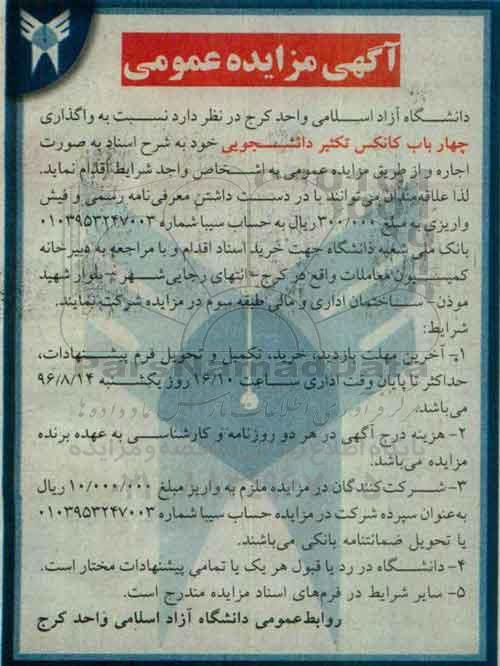 آگهی مزایده عمومی
دانشگاه آزاد اسلامی واحد کرج در نظر دارد نسبت به واگذاری
چهار باب کانکس تکثیر دانشجویی خود به شرح اسناد به صورت
اجاره و از طریق مزایده عمومی به اشخاص واجد شرایط اقدام نماید.
لذا علاقه‌مندان می‌توانند با در دست داشتن معرفی‌نامه رسمی و فیش
واریزی به مبلغ ۳۰۰/۰۰۰ ریال به حساب سیبا شماره ۰۱۰۳۹۵۳۲۴۷۰۰۳
بانک ملی شعبه دانشگاه جهت خرید اسناد اقدام و با مراجعه به دبیرخانه
کمیسیون معاملات واقع در کرج- انتهای رجایی‌شهر - بلوار شهید
موذن- ساختمان اداری و مالی طبقه سوم در مزایده شرکت نمایند.
شرایط:
۱- آخرین مهلت بازدید، خرید، تکمیل و تحویل فرم پیشنهادات،
حداکثر تا پایان وقت اداری ساعت ۱۶/۱۰ روز یکشنبه ۹۶/۸/۱۴
می‌باشد.
۲- هزینه درج آگهی در هر دو روزنامه و کارشناسی به عهده برنده
مزایده می‌باشد.
۳- شرکت‌کنندگان در مزایده ملزم به واریز مبلغ ۱۰/۰۰۰/۰۰۰ ریال
به‌عنوان سپرده شرکت در مزایده حساب سیبا شماره ۰۱۰۳۹۵۳۲۴۷۰۰۳
یا تحویل ضمانتنامه بانکی می‌باشند.
۴- دانشگاه در رد یا قبول هر یک یا تمامی پیشنهادات مختار است.
۵- سایر شرایط در فرم‌های اسناد مزایده مندرج است.
روابط‌عمومی دانشگاه آزاد اسلامی واحد کرج
ParsNamadData